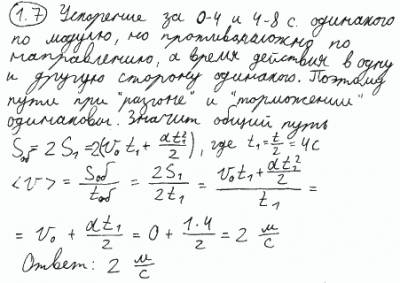 1.7) Ускорение за 0-4 и 4-8 с. одинаково
по модулю, но противоположно по
направлению, а время действия в одну
и другую сторону одинаково. Поэтому
пути при "разгоне" и "торможении"
одинаковы. Значит общий путь
Sоб = 2S₁ = 2(v₀t₁ + at₁²/2), где t₁ = t/2 = 4с
<v> = Sоб/tоб = 2S₁/2t₁ = (v₀t₁ + at₁²/2)/t₁ =
= v₀ + at₁/2 = 0 + 1·4/2 = 2 м/с
Ответ: 2 м/с